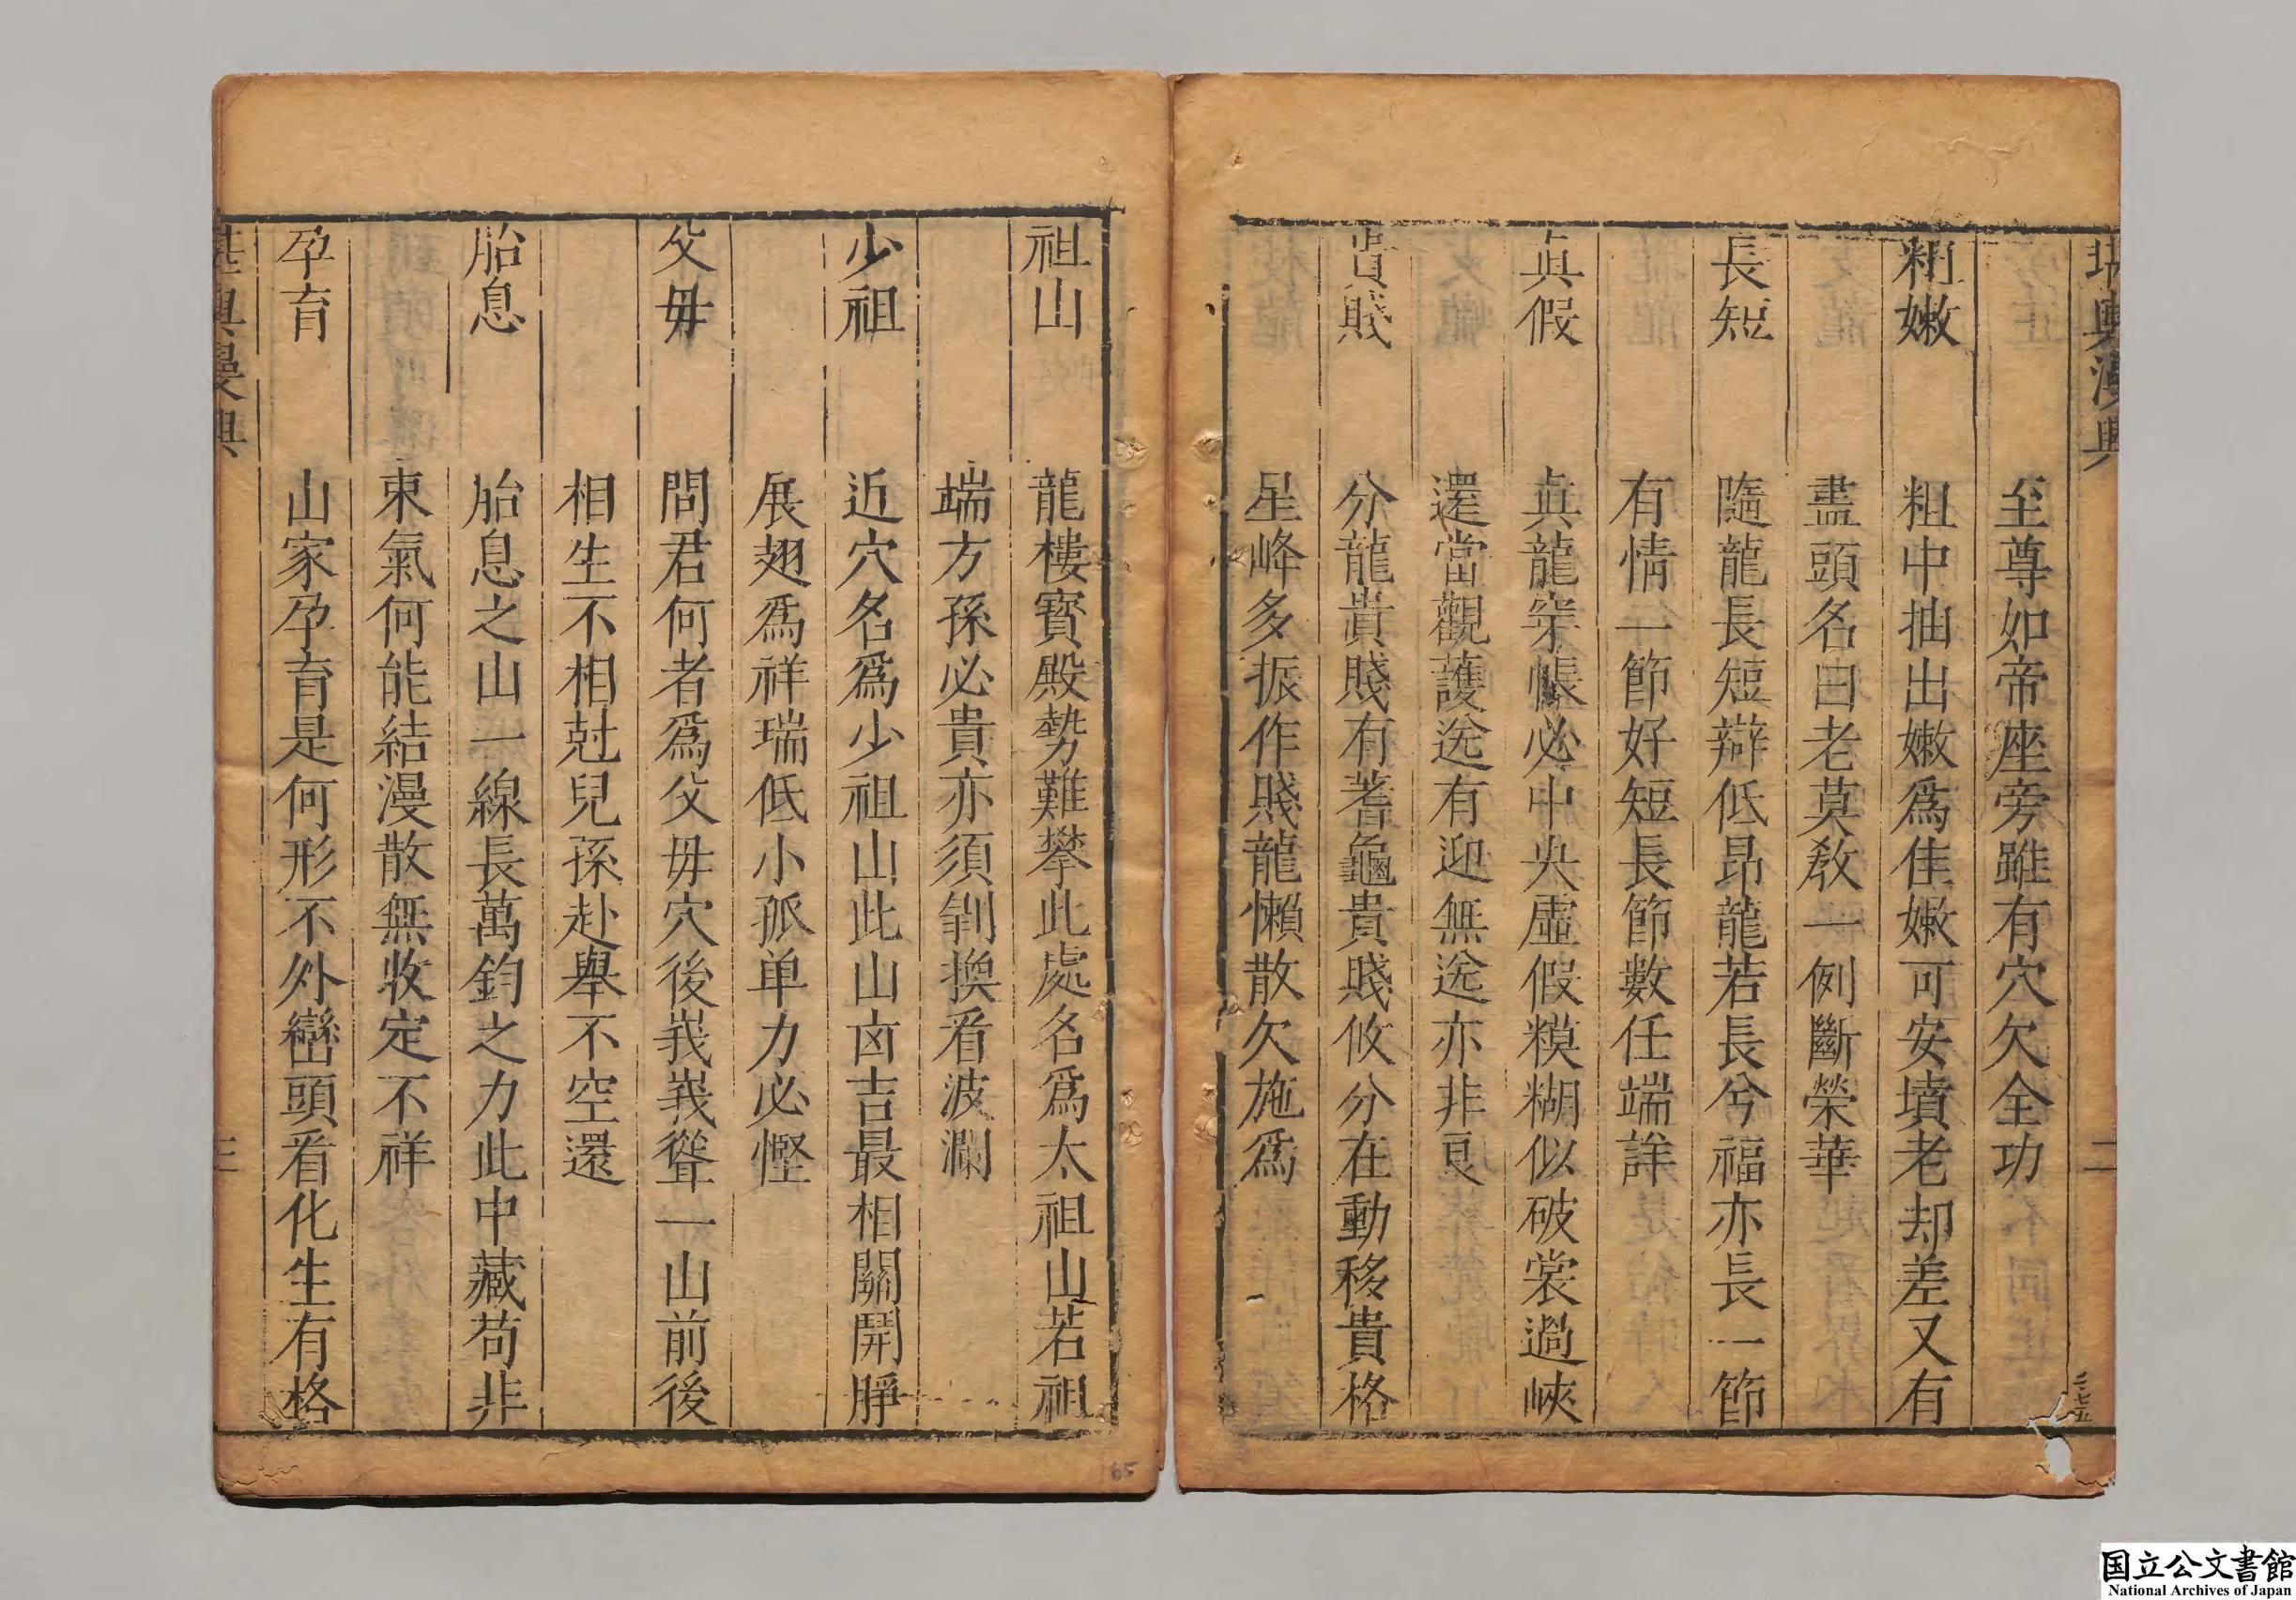 堪輿漫興 二
至尊如帝座旁雖有穴欠全功
粗嫩 粗中抽出嫩爲佳嫩可安墳老却差又有
盡頭名曰老莫敎一例斷榮華
長短 隨龍長短辯低昂龍若長兮福亦長一節
有情一節好短長節數任端詳
眞假 眞龍穿帳必中央虛假糢糊似破裳過峽
還當觀護送有迎無送亦非良
貴賤 分龍貴賤有蓍龜貴賤攸分在動移貴格
星峰多振作賤龍懶散欠施爲
祖山 龍樓寳殿勢難攀此處名爲太祖山若祖
端方孫必貴亦須剝換看波瀾
少祖 近穴名爲少祖山此山凶吉最相關開睜
展翅爲祥瑞低小孤单力必慳
父母 問君何者爲父母穴後峩峩聳一山前後
相生不相尅兒孫赴舉不空還
胎息 胎息之山一線長萬鈞之力此中藏苟非
束氣何能結漫散無收定不祥
孕育 山家孕育是何形不外巒頭看化生有格
堪輿漫興 三
65
国立公文書館
National Archives of Japan